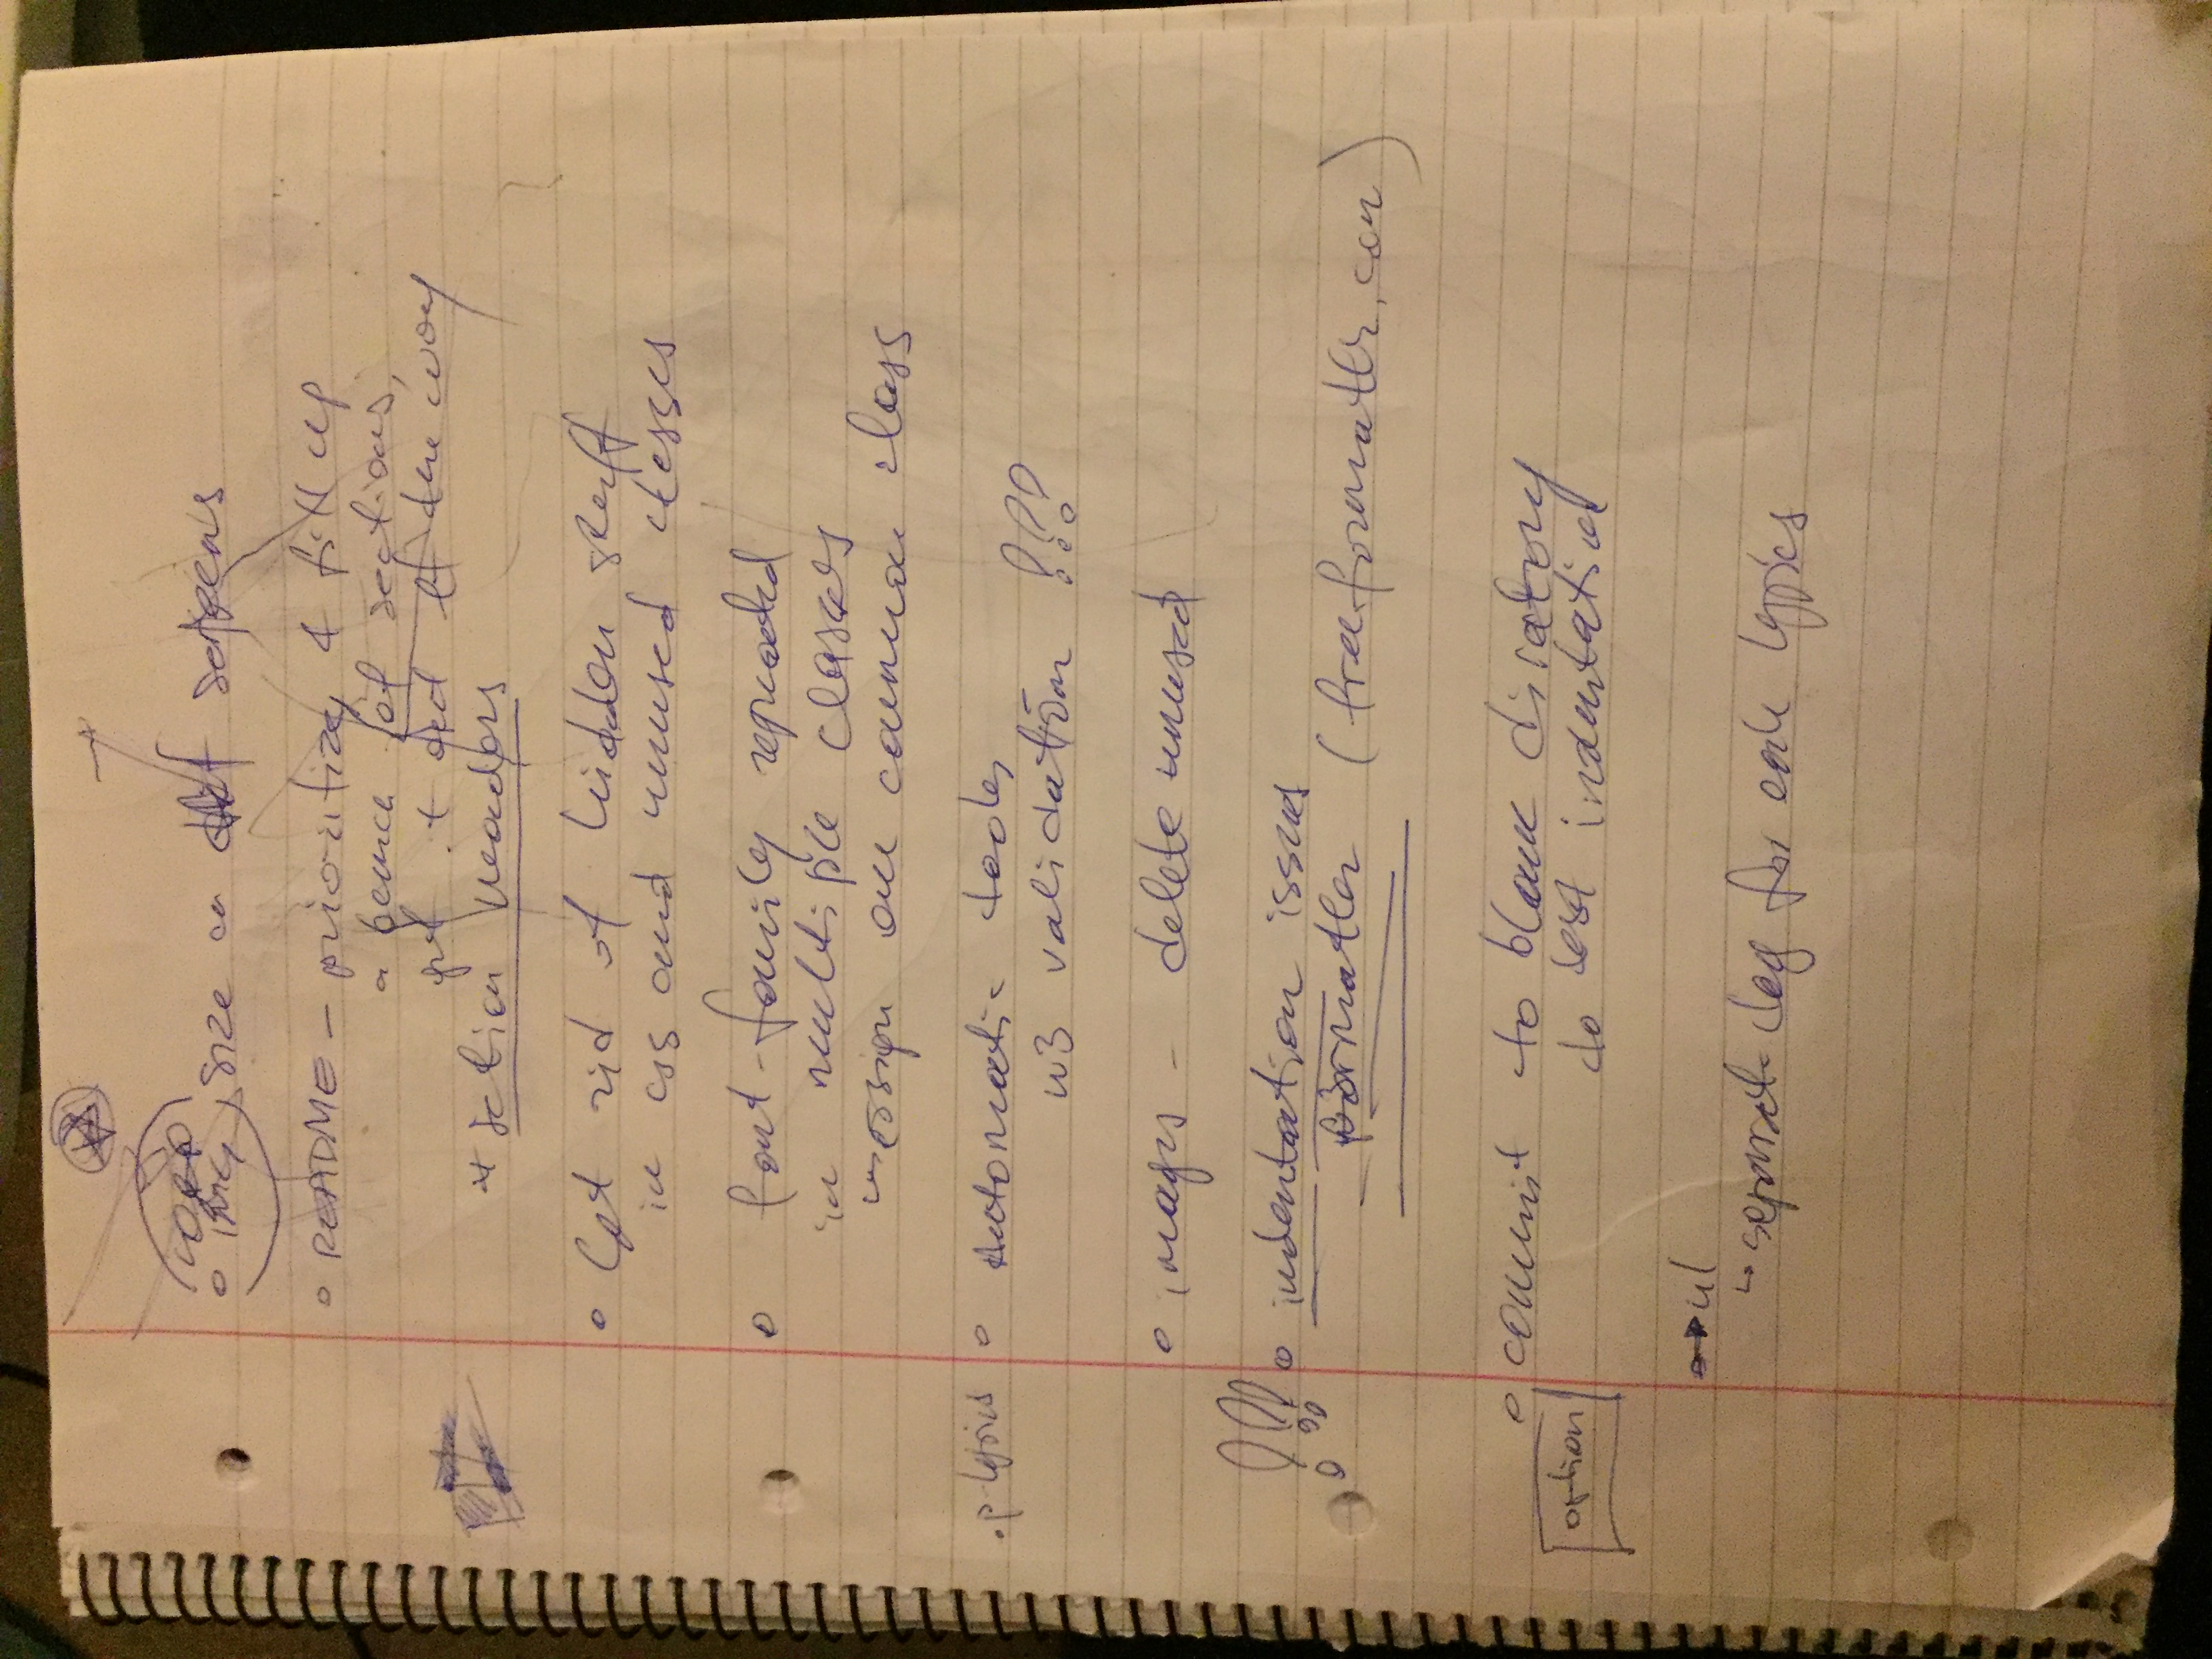 logo
img size on dif screens
README - prioritizy & fill up
a bunch of sections,
get it out of the way
* section headers
Get rid of hidden stuff
in css and unused classes
font-family repeated
in multiple classes
assign one common class
.p-lyrics
Automatic tools
w3 validation !!!
images - delete unused
!!! indentation issues
formatter (freeformatter.com)
commit to blank directory
option
to test indentation
→ ul
↳ separate tag for each lyrics